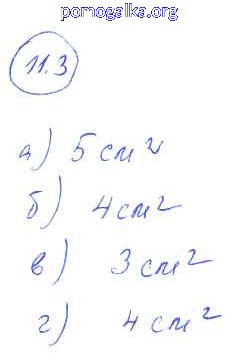 pomogalka.org
11.3
а) 5 см²
б) 4 см²
в) 3 см²
г) 4 см²